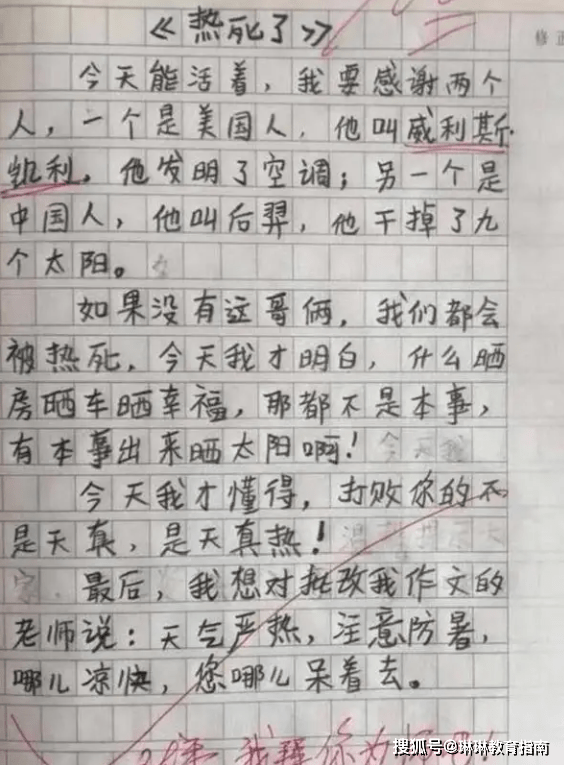 《热死了》
修正
今天能活着，我要感谢两个
人，一个是美国人，他叫威利斯
凯利，他发明了空调；另一个是
中国人，他叫后羿，他干掉了九
个太阳。
如果没有这哥俩，我们都会
被热死，今天我才明白，什么晒
房晒车晒幸福，那都不是本事，
有本事出来晒太阳啊！
今天我才懂得，打败你的不
是天真，是天真热！
最后，我想对批改我作文的
老师说：天气严热，注意防暑，
哪儿凉快，您哪儿呆着去。
我拜你为
搜狐号@琳琳教育指南